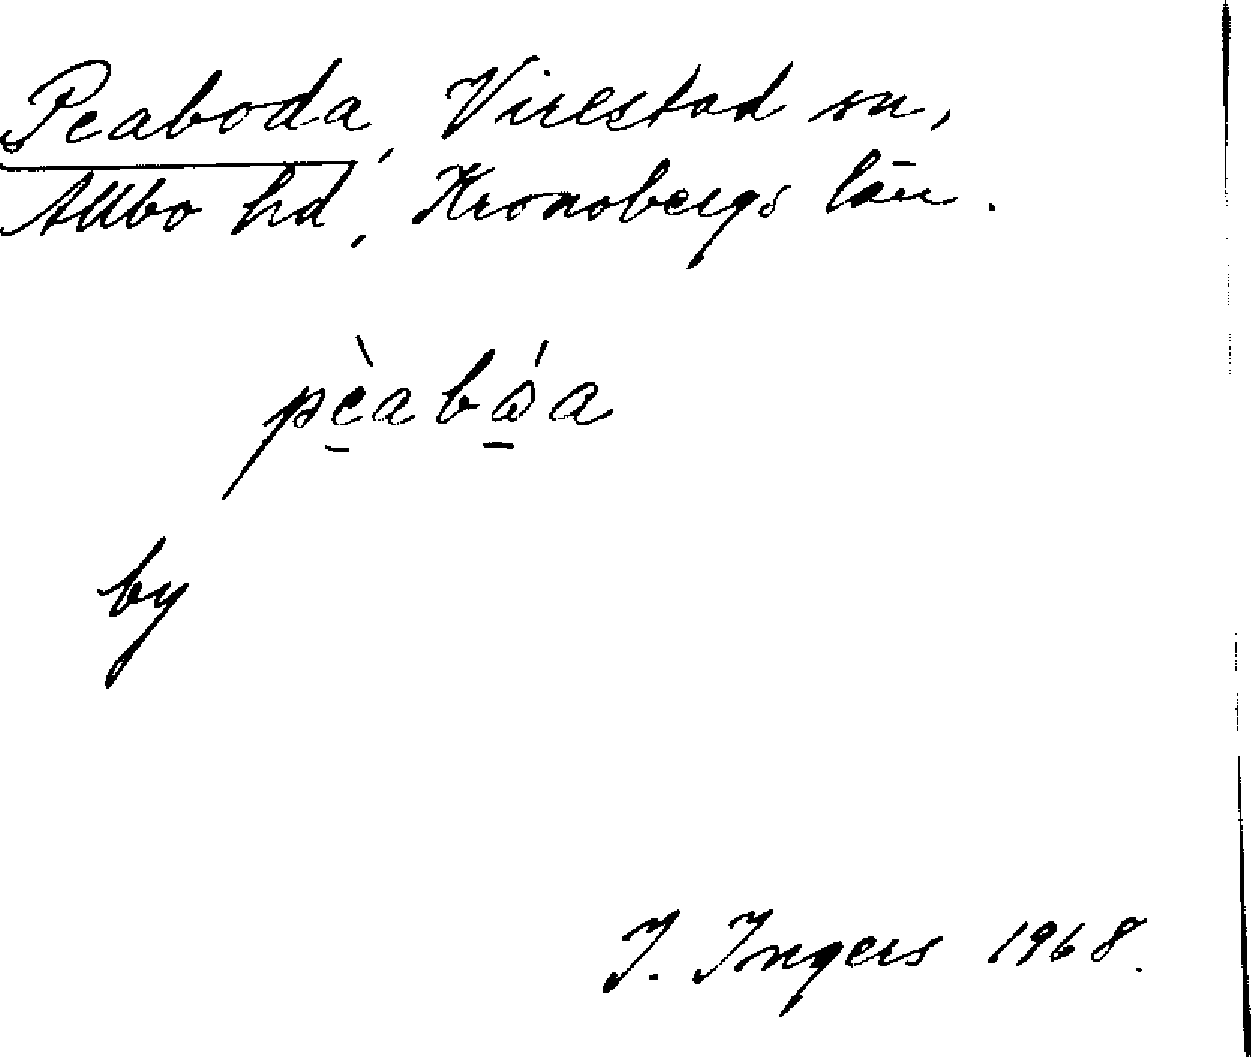 Peaboda, Virestad sn,
Allbo hd, Kronobergs län.
pè̠abώ̠a
by
I. Ingers 1968.